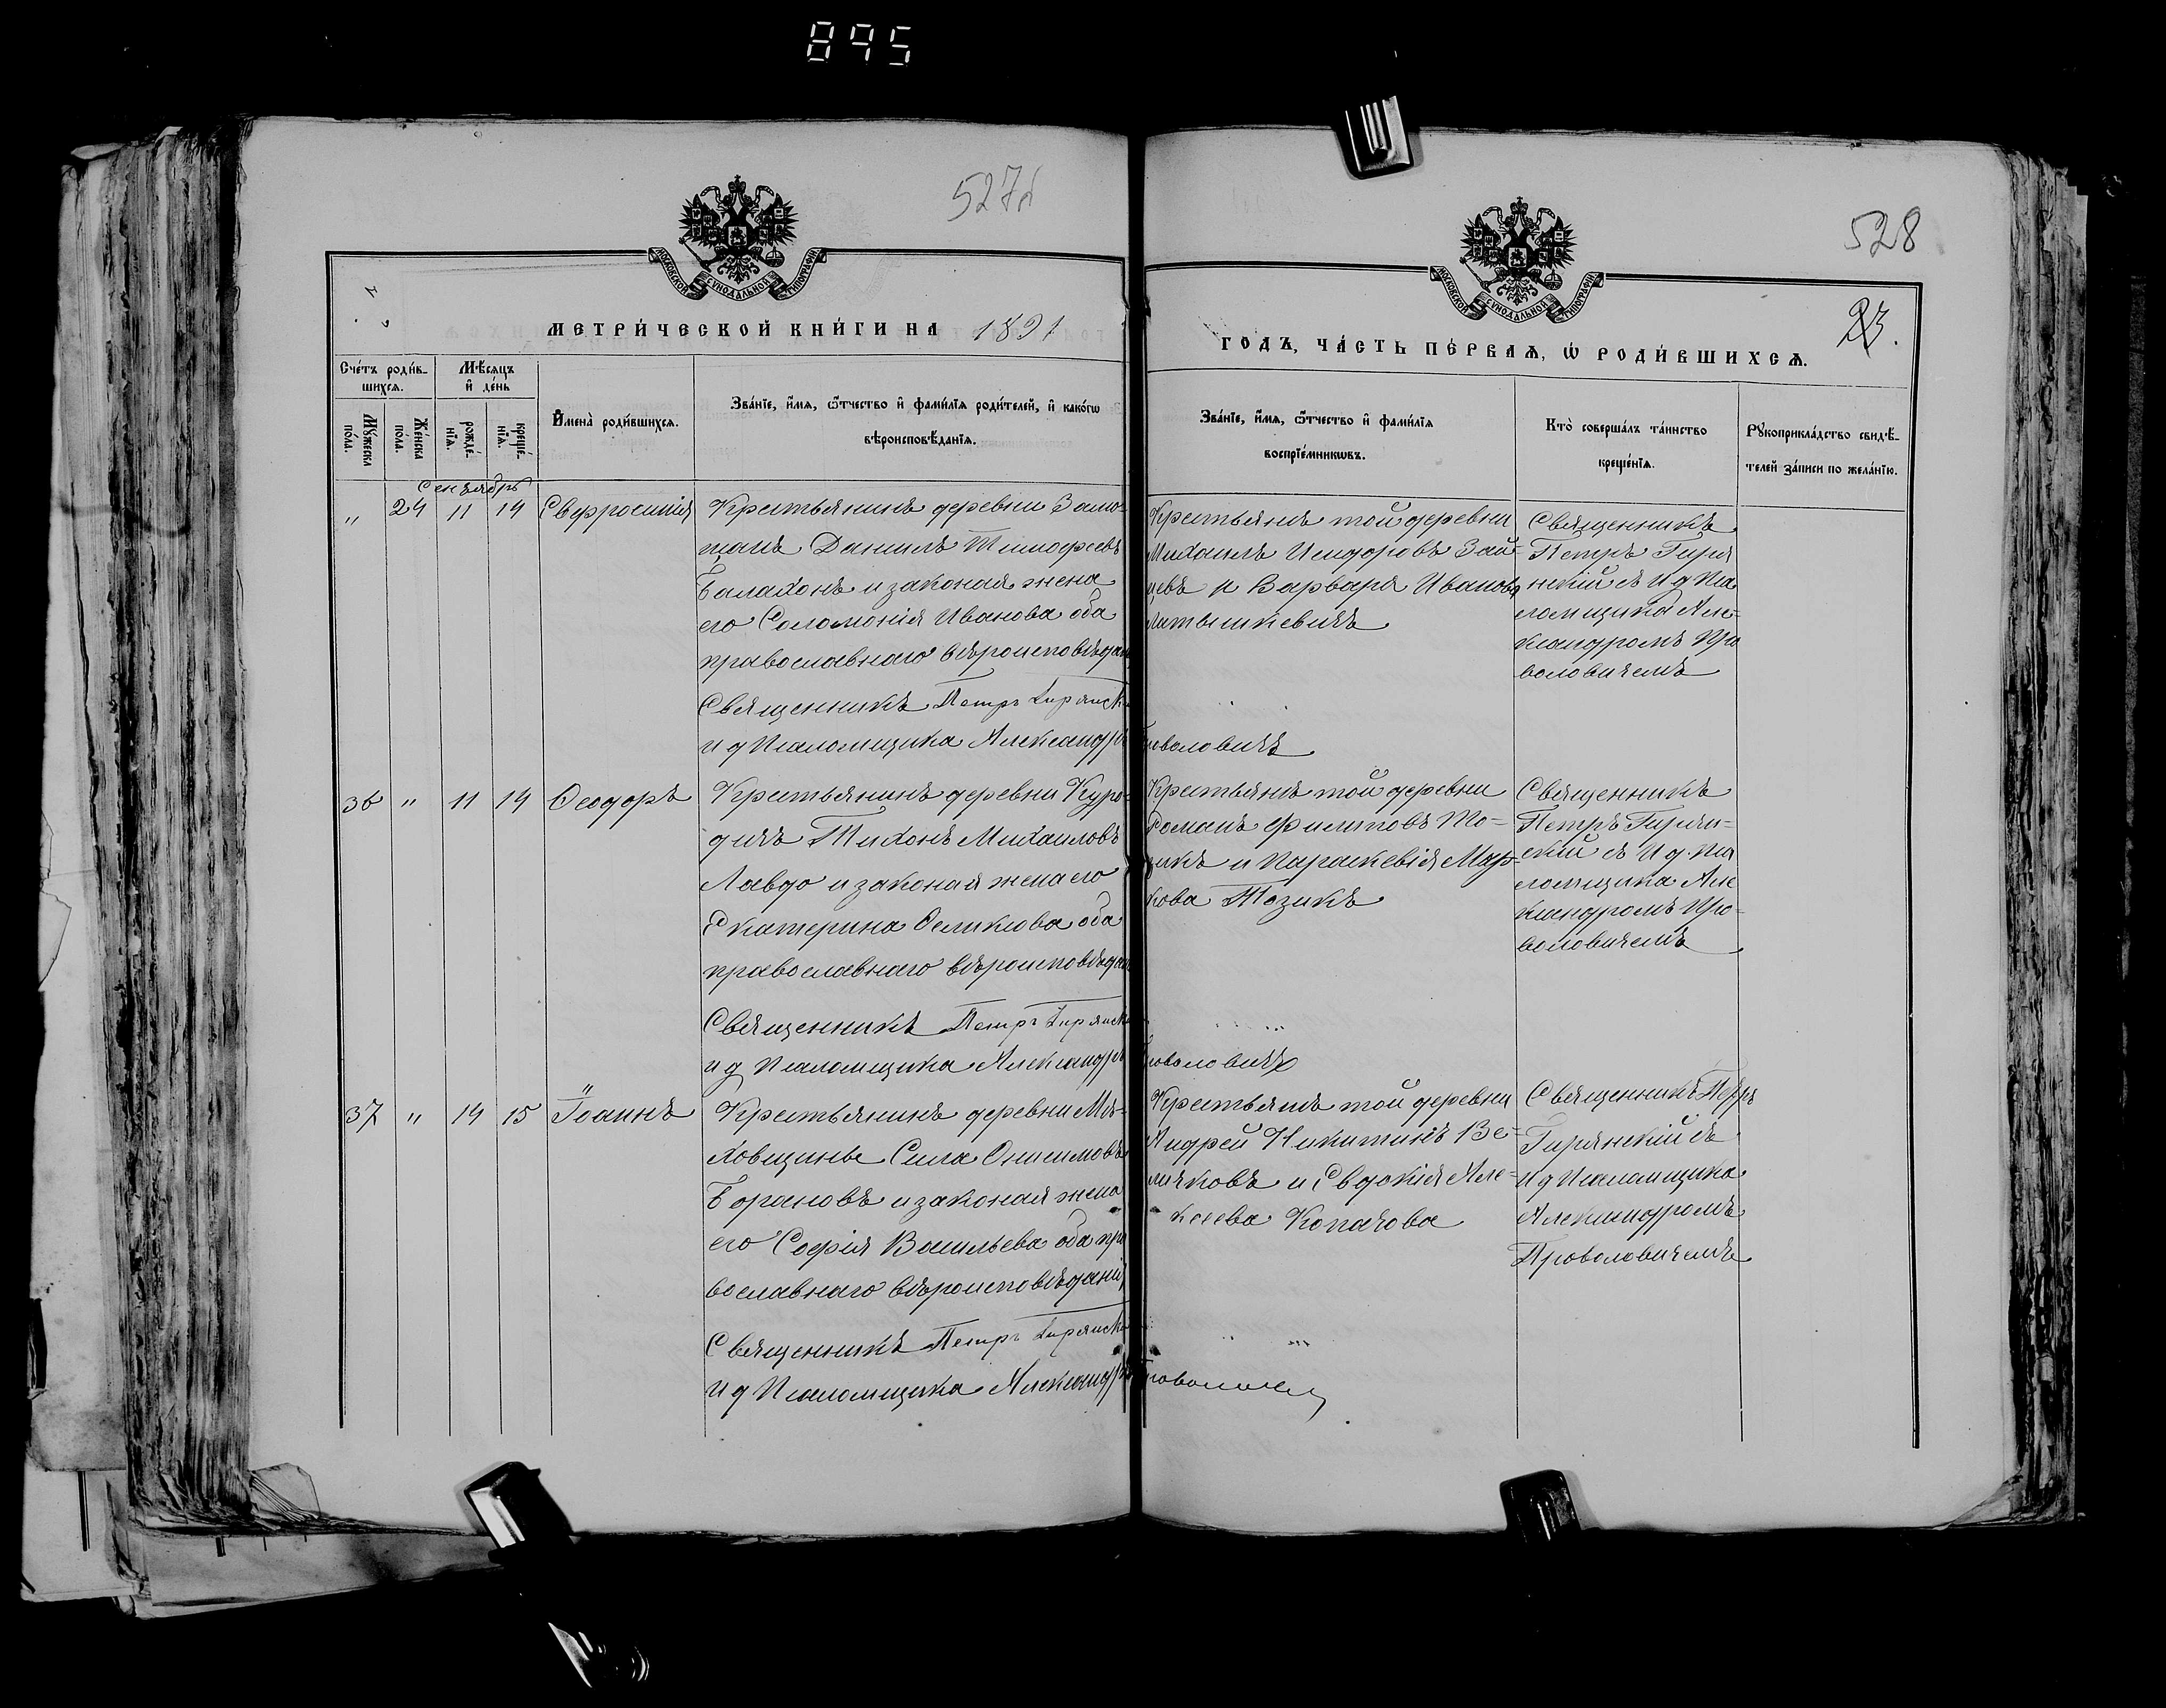 895
527б
528
МОСКОВСКОЙ СУНОДАЛЬНОЙ ТИПОГРАФІИ
МОСКОВСКОЙ СУНОДАЛЬНОЙ ТИПОГРАФІИ
23.
МЕТРИ́ЧЕСКОЙ КНИ́ГИ НА 1891
ГОДЪ, ЧА́СТЬ ПЕ́РВАѦ, Ѡ҆ РОДИ́ВШИХСѦ.
Сче́тъ роди́в-
шихсѧ.
Мꙋ́жеска
по́ла.
Же́нска
по́ла.
Мѣ́сѧцъ
и҆ де́нь
рожде́-
нїѧ.
креще́-
нїѧ.
И҆мена̀ роди́вшихсѧ.
Зва́нїе, и҆́мѧ, ѻ҆́тчество и҆ фами́лїѧ роди́телей, и҆ како́гѡ
вѣроисповѣ́данїѧ.
Зва́нїе, и҆́мѧ, ѻ҆́тчество и҆ фами́лїѧ
воспрїе́мникѡвъ.
Кто̀ соверша́лъ та́инство
креще́нїѧ.
Рꙋкоприкла́дство свидѣ́-
телей за́писи по жела́нїю.
Сентябрь
„ 24 11 14 Евфросинія
Крестьянинъ деревни Замо-
Данiилъ Тимофеевъ
Балахонъ и законая жена
его Соломонія Иванова оба
православнаго вѣроисповѣдан
Священникъ Петръ Гирянск
и д Псаломщика Александръ Проволовичъ
Крестьянъ той деревни
Михаилъ Исидоровъ Зай-
цевъ и Варвара Иванова
Священникъ
Петръ Гиря
нскій съ И д Пса
ломщика Але-
ксандромъ Про
воловичемъ
36 „ 11 14 Ѳеодоръ
Крестьянинъ деревни Куро-
дичъ Тихонъ Михаиловъ
Лавдо и законая жена его
Екатерина оба
православнаго вѣроисповѣдан
Священникъ Петръ Гирянск
и д Псаломщика Александръ Проволовичъ
Крестьянъ той деревни
Романъ Филиповъ То-
зикъ и Параскевія Мар-
кова Тозикъ
Священникъ
Петръ Гирян-
скій съ И д. Пса
ломщика Але
ксандромъ Про-
воловичемъ
37 „ 14 15 Іоаннъ
Крестьянинъ деревни Мѣ-
ховщины Сила Онисимовъ
Борановъ и законая жена
его Софія Васильева оба пра
вославнаго вѣроисповѣданія
Священникъ Петръ Гирянск
и д Псаломщика Александръ Проволович
Крестьянъ той деревни
Андрей Никитинъ Ве-
личковъ и Евдокія Але-
ксеева Копачова
Священникъ Петръ
Гирянскій съ
И д Псаломщика
Александромъ
Проволовичемъ